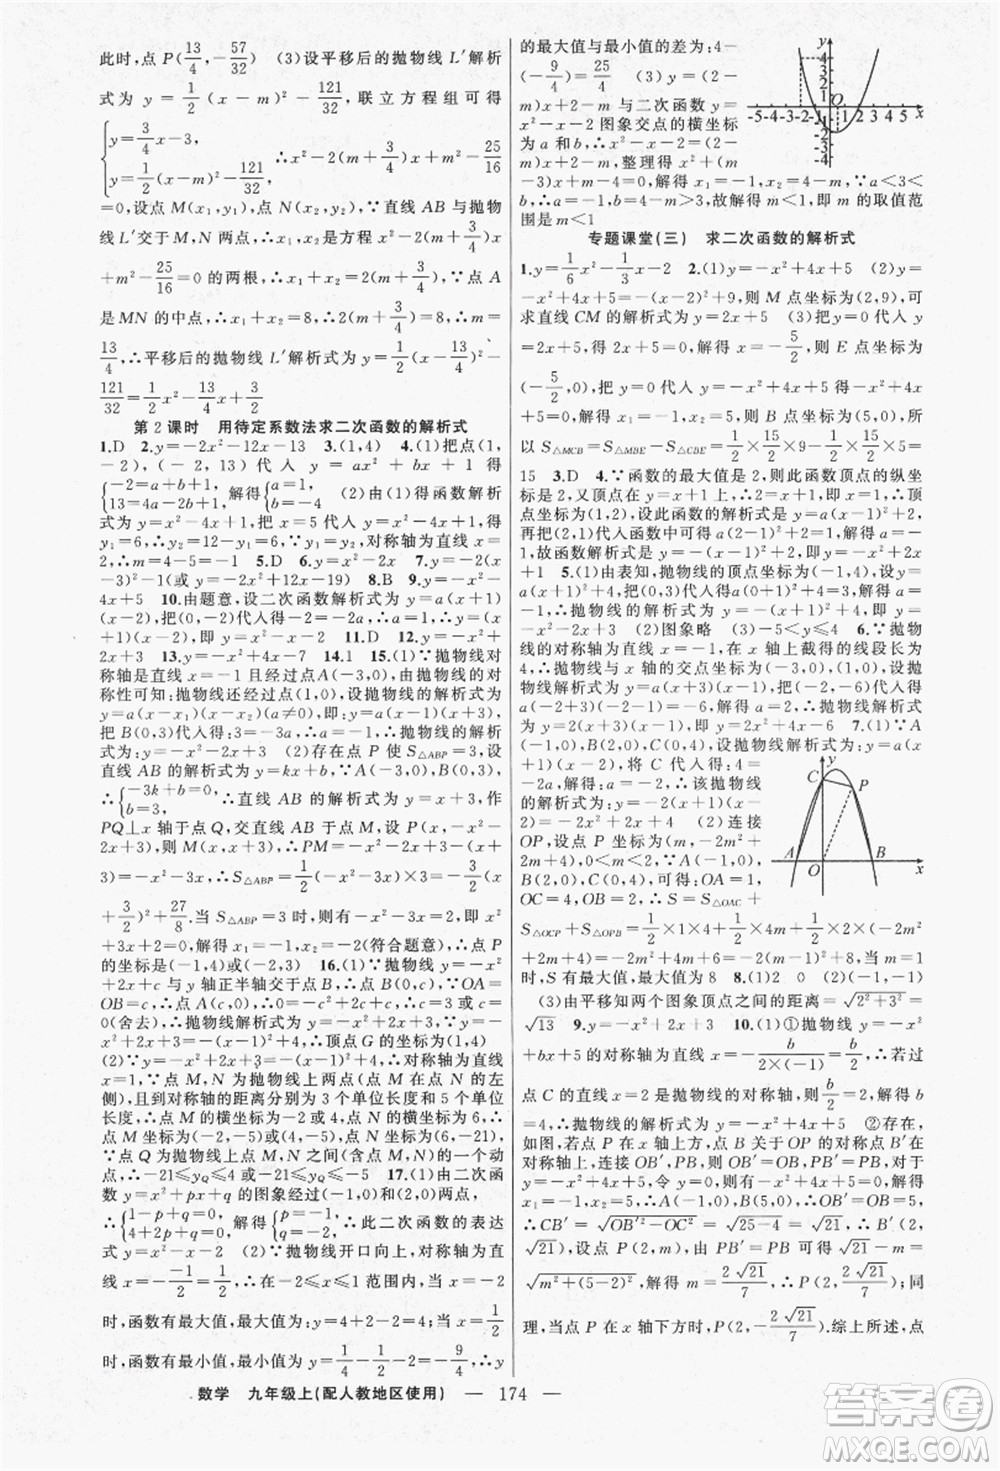 此时,点 P(13/4,-57/32) (3)设平移后的抛物线 L′解析
式为 y=1/2(x-m)²-121/32,联立方程组可得
{y=3/4x-3, y=1/2(x-m)²-121/32, ∴x²-2(m+3/4)x+m²-25/16
=0,设点 M(x₁,y₁),点 N(x₂,y₂),∵直线 AB 与抛物
线 L′交于 M,N 两点,∴x₁,x₂ 是方程 x²-2(m+3/4)x
+m²-25/16=0 的两根,∴x₁+x₂=2(m+3/4),∵点 A
是 MN 的中点,∴x₁+x₂=8,∴2(m+3/4)=8,∴m=
13/4,∴平移后的抛物线 L′解析式为 y=1/2(x-13/4)²-
121/32=1/2x²-13/4x+3/2
第 2 课时 用待定系数法求二次函数的解析式
1.D 2.y=-2x²-12x-13 3.(1,4) 4.(1)把点(1,
-2)和(-1,13)代入 y=ax²+bx+1 得
{-2=a+b+1, 13=a-b+1, 解得{a=1, b=-4 (2)由(1)得函数解析
式为 y=x²-4x+1,把 x=5 代入 y=x²-4x+1 得
y₁=6,∴y₂=12-y₁=6,∵y₁=y₂,对称轴为直线 x=
2,∴m=4-5=-1 5.D 6.y=-x²+2x+3 7.y=
(x-3)²-1(或 y=x²-6x+8) 8.B 9.y=-x²-
4x+5 10.由题意,设二次函数解析式为 y=a(x+1)
(x-2),把(0,-2)代入得-2=-2a,∴a=1,∴y=(x
+1)(x-2),即 y=x²-x-2 11.D 12.y=-x²+
2x+3 13.y=-x²+4x-7 14.1 15.(1)∵抛物线对
称轴是直线 x=-1 且经过点 A(-3,0),由抛物线的对
称性可知:抛物线还经过点(1,0),设抛物线的解析式为
y=a(x-x₁)(x-x₂)(a≠0),即 y=a(x-1)(x+3),
把 B(0,3)代入得:3=-3a,∴a=-1,∴抛物线的解析
式为:y=-x²-2x+3 (2)存在点 P 使 S△ABP=3,设
直线 AB 的解析式为 y=kx+b,∵A(-3,0),B(0,3),
∴{-3k+b=0, b=3, ∴直线 AB 的解析式为 y=x+3,作
PQ⊥x 轴于点 Q,交直线 AB 于点 M,设 P(x,-x²-
2x+3),则 M(x,x+3),∴PM=-x²-2x+3-(x+
3)=-x²-3x,∴S△ABP=1/2(-x²-3x)×3=-3/2(x
+3/2)²+27/8.当 S△ABP=3 时,则有-x²-3x-2=
0,解得 x₁=-1,x₂=-2(符合题意),∴点 P
的坐标为(-1,4)或(-2,3) 16.(1)∵抛物线 y=-x²
+2x+c 与 y 轴正半轴交于点 B,∴点 B(0,c),∵OA=
OB=c,∴点 A(c,0),∴0=-c²+2c+c,∴c=3 或
0(舍去),∴抛物线解析式为:y=-x²+2x+3,∵y=
-x²+2x+3=-(x-1)²+4,∴顶点 G 的坐标为(1,4)
(2)∵y=-x²+2x+3=-(x-1)²+4,∴对称轴为直线
x=1,∵点 M,N 为抛物线上两点(点 M 在点 N 的左
侧),且到对称轴的距离分别为 3 个单位长度和 5 个单位
长度,∴点 M 的横坐标为-2 或 4,点 N 的横坐标为 6,
∴点 M 坐标为(-2,-5)或(4,-5),点 N 坐标(6,-21),
∵点 Q 为抛物线上点 M,N 之间(含点 M,N)的一个动
点,∴-21≤yQ≤4 或-21≤yQ≤-5 17.(1)由二次函
数 y=x²+px+q 的图象经过(-1,0)和(2,0)两点,
∴{1-p+q=0, 4+2p+q=0, 解得{p=-1, q=-2, ∴此二次函数的表达
式 y=x²-x-2 (2)∵抛物线开口向上,对称轴为直
线 x=-(-1)/2=1/2,∴在-2≤x≤1 范围内,当 x=-2
时,函数有最大值,最大值为:y=4+2-2=4,当 x=1/2
时,函数有最小值,最小值为 y=1/4-1/2-2=-9/4,∴y
的最大值与最小值的差为:4-
(-9/4)=25/4 (3) y=(2-
m)x+2-m 与二次函数 y=
x²-x-2 图象交点的横坐标
为 a 和 b,∴x²-x-2=(2-
m)x+2-m,整理得 x²+(m
-3)x+m-4=0,解得 x₁=-1,x₂=4-m,∵a<3<
b,∴a=-1,b=4-m>3,故解得 m<1,即 m 的取值范
围是 m<1
y 4 3 2 1 O -5-4-3-2-1 1 2 3 4 5 x -1 -2 -3 -4
专题课堂(三) 求二次函数的解析式
1.y=1/6x²-1/3x-2 2.(1)y=-x²+4x+5 (2)y=
-x²+4x+5=-(x-2)²+9,则 M 点坐标为(2,9),可
求直线 CM 的解析式为 y=2x+5 (3)把 y=0 代入
y=2x+5,得 2x+5=0,解得 x=-5/2,则 E 点坐标为
(-5/2,0),把 y=0 代入 y=-x²+4x+5 得-x²+4x
+5=0,解得 x₁=-1,x₂=5,则 B 点坐标为(5,0),所
以 S△MCB=S△MBE-S△CBE=1/2×15/2×9-1/2×15/2×5=
15 3.D 4.∵函数的最大值是 2,则此函数顶点的纵坐
标是 2,又顶点在 y=x+1 上,∴2=x+1,∴x=1,∴顶
点坐标为(1,2),设此函数的解析式是 y=a(x-1)²+2,
再把(2,1)代入函数中可得 1=a(2-1)²+2,解得 a=
-1,故函数解析式是 y=-(x-1)²+2,即 y=-x²+2x
+1 5.(1)由表知,抛物线的顶点坐标为(-1,4),设 y=
a(x+1)²+4,把(0,3)代入得 a(0+1)²+4=3,解得 a
=-1,∴抛物线的解析式为 y=-(x+1)²+4,即 y=
-x²-2x+3 (2)图象略 (3)-5<y≤4 6.∵抛物
线的对称轴为直线 x=-1,在 x 轴上截得的线段长为
4,∴抛物线与 x 轴的交点坐标为(-3,0),(1,0),设抛
物线解析式为 y=a(x+3)(x-1),把(-2,-6)代入得
a(-2+3)(-2-1)=-6,解得 a=2,∴抛物线解析式
为 y=2(x+3)(x-1),即 y=2x²+4x-6 7.(1)∵A
(-1,0),B(2,0),C(0,4),设抛物线的解析式为 y=
a(x+1)(x-2),将 C 代入得:4=
-2a,解得:a=-2,∴该抛物线
的解析式为:y=-2(x+1)(x-
2)=-2x²+2x+4 (2)连接
OP,设点 P 坐标为(m,-2m²+
2m+4),0<m<2,∵A(-1,0),
B(2,0),C(0,4),可得:OA=1,
OC=4,OB=2,∴S=S△OAC+
S△OCP+S△OPB=1/2×1×4+1/2×4m+1/2×2×(-2m²
+2m+4)=-2m²+4m+6=-2(m-1)²+8,当 m=1
时,S 有最大值,最大值为 8 8.(1)2 0 (2)(-1,-1)
(3)由平移知两个图象顶点之间的距离=√(2²+3²)=
√13 9.y=-x²-2x+3 10.(1)①抛物线 y=-x²
+bx+5 的对称轴为直线 x=-b/(2×(-1))=b/2,∴若过
点 C 的直线 x=2 是抛物线的对称轴,则 b/2=2,解得 b
=4,∴抛物线的解析式为 y=-x²+4x+5 ②存在,
如图,若点 P 在 x 轴上方,点 B 关于 OP 的对称点 B′在
对称轴上,连接 OB′,PB,则 OB′=OB,PB′=PB,对于
y=-x²+4x+5,令 y=0,则-x²+4x+5=0,解得 x₁
=-1,x₂=5,∴A(-1,0),B(5,0),∴OB′=OB=5,
∴CB′=√(OB′²-OC²)=√(25-4)=√21,∴B′(2,
√21),设点 P(2,m),由 PB′=PB 可得√21-m=
√(m²+(5-2)²),解得 m=2√21/7,∴P(2,2√21/7);同
理,当点 P 在 x 轴下方时,P(2,-2√21/7).综上所述,点
y C P A O B x
数学 九年级上(配人教地区使用) — 174 —
答案圈
MXQE.COM